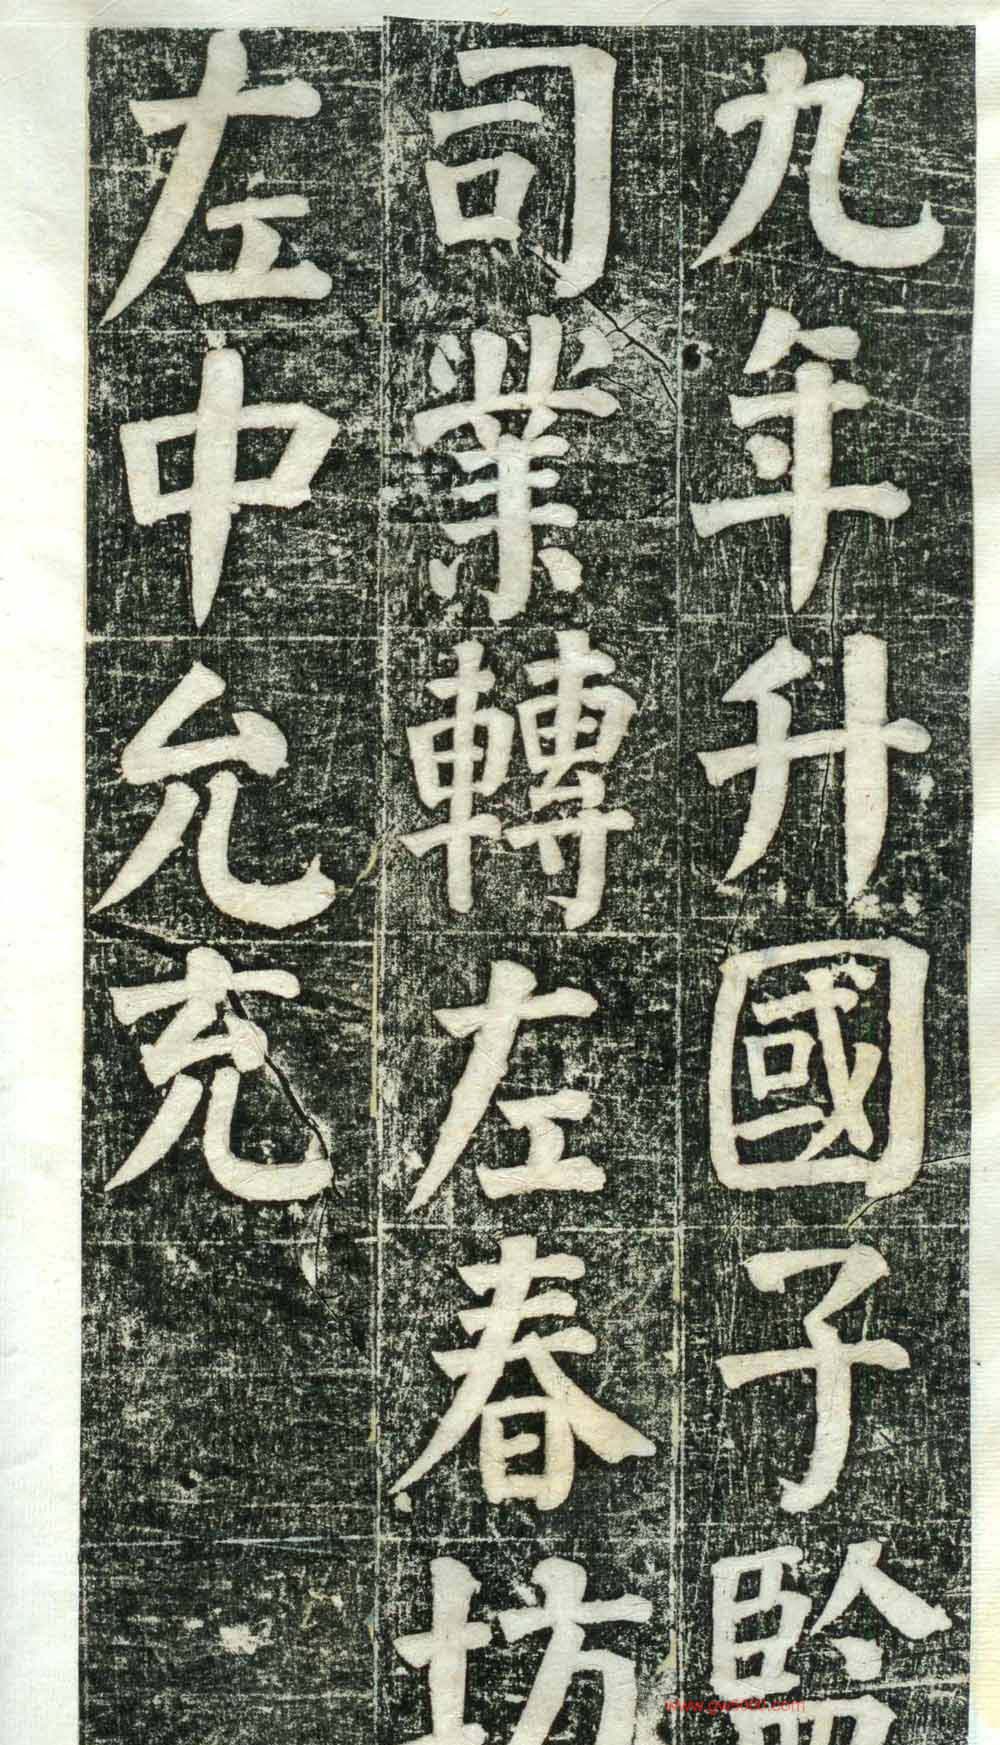 九年升國子監
司業轉左春坊
左中允充
www.gw5000.com